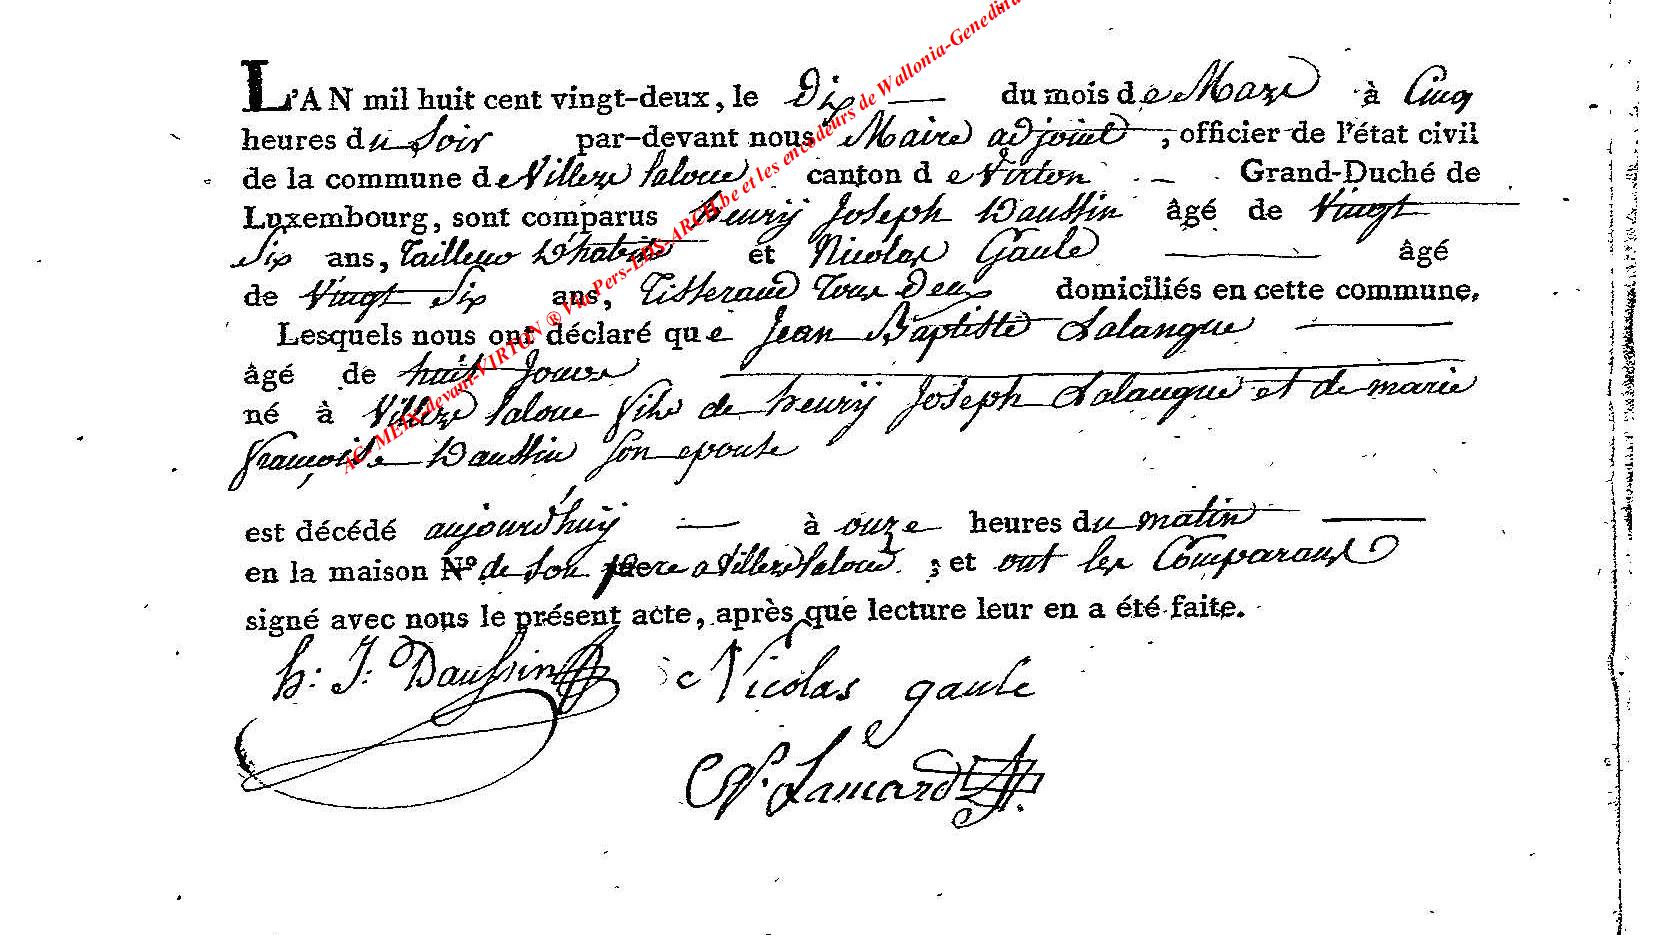 L'AN mil huit cent vingt-deux, le Dix du mois de Mars à Cinq
heures du Soir par-devant nous Maire adjoint, officier de l'état civil
de la commune de Villers laloue canton de Virton Grand-Duché de
Luxembourg, sont comparus henrÿ Joseph Daussin âgé de Vingt
Six ans, Tailleur D'habits et Nicolas Gaule âgé
de Vingt Six ans, Tisserand Tous Deux domiciliés en cette commune.
Lesquels nous ont déclaré que Jean Baptiste Lalangue
âgé de huit Jours
né à Villers laloue fils de henrÿ Joseph Lalangue et de marie
françoise Daussin son epouse
est décédé aujourd'huÿ à onze heures du matin
en la maison N° de son pere a Villers laloue ; et ont les Comparans
signé avec nous le présent acte, après que lecture leur en a été faite.
h: J: Daussin Nicolas gaule
N. Lamard
AC- MEIX-devant-VIRTON ® Via Pers-LUX-ARCH.be et les encodeurs de Wallonia-Genedina